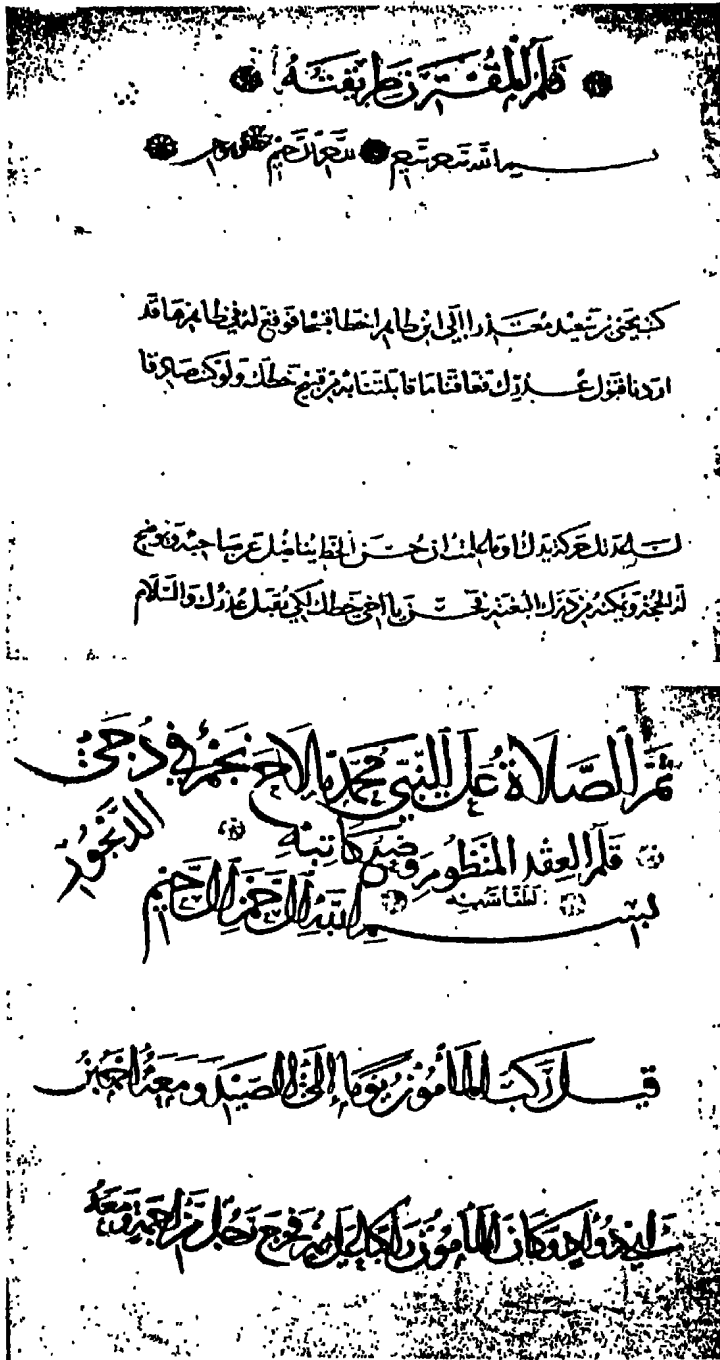 قلم المقترن طريقته
بسم الله
كتب يحيى بن سعيد معتذرا إلى ابن طاهر بخط فوقع له في ظاهرها قد
اردنا قبول عذرك فعاقنا ما قابلتنا به من قبيح خطك ولو كنت صادقا
حركة يدك اوما علمت ان حسن الخط يناضل عن صاحبه ويوضح
له الحجة ويمكنه من درك البغية يا اخي خطك لكي نقبل عذرك والسلام
ثم الصلاة على النبي محمد ما لاح نجم في دجى
الديجور
قلم العقد المنظوم وضع كاتبه
لطف الله به
بسم الله الرحمن الرحيم
قيل ركب المأمون يوما إلى الصيد ومعه احمد بن
ابي دواد وكان المأمون